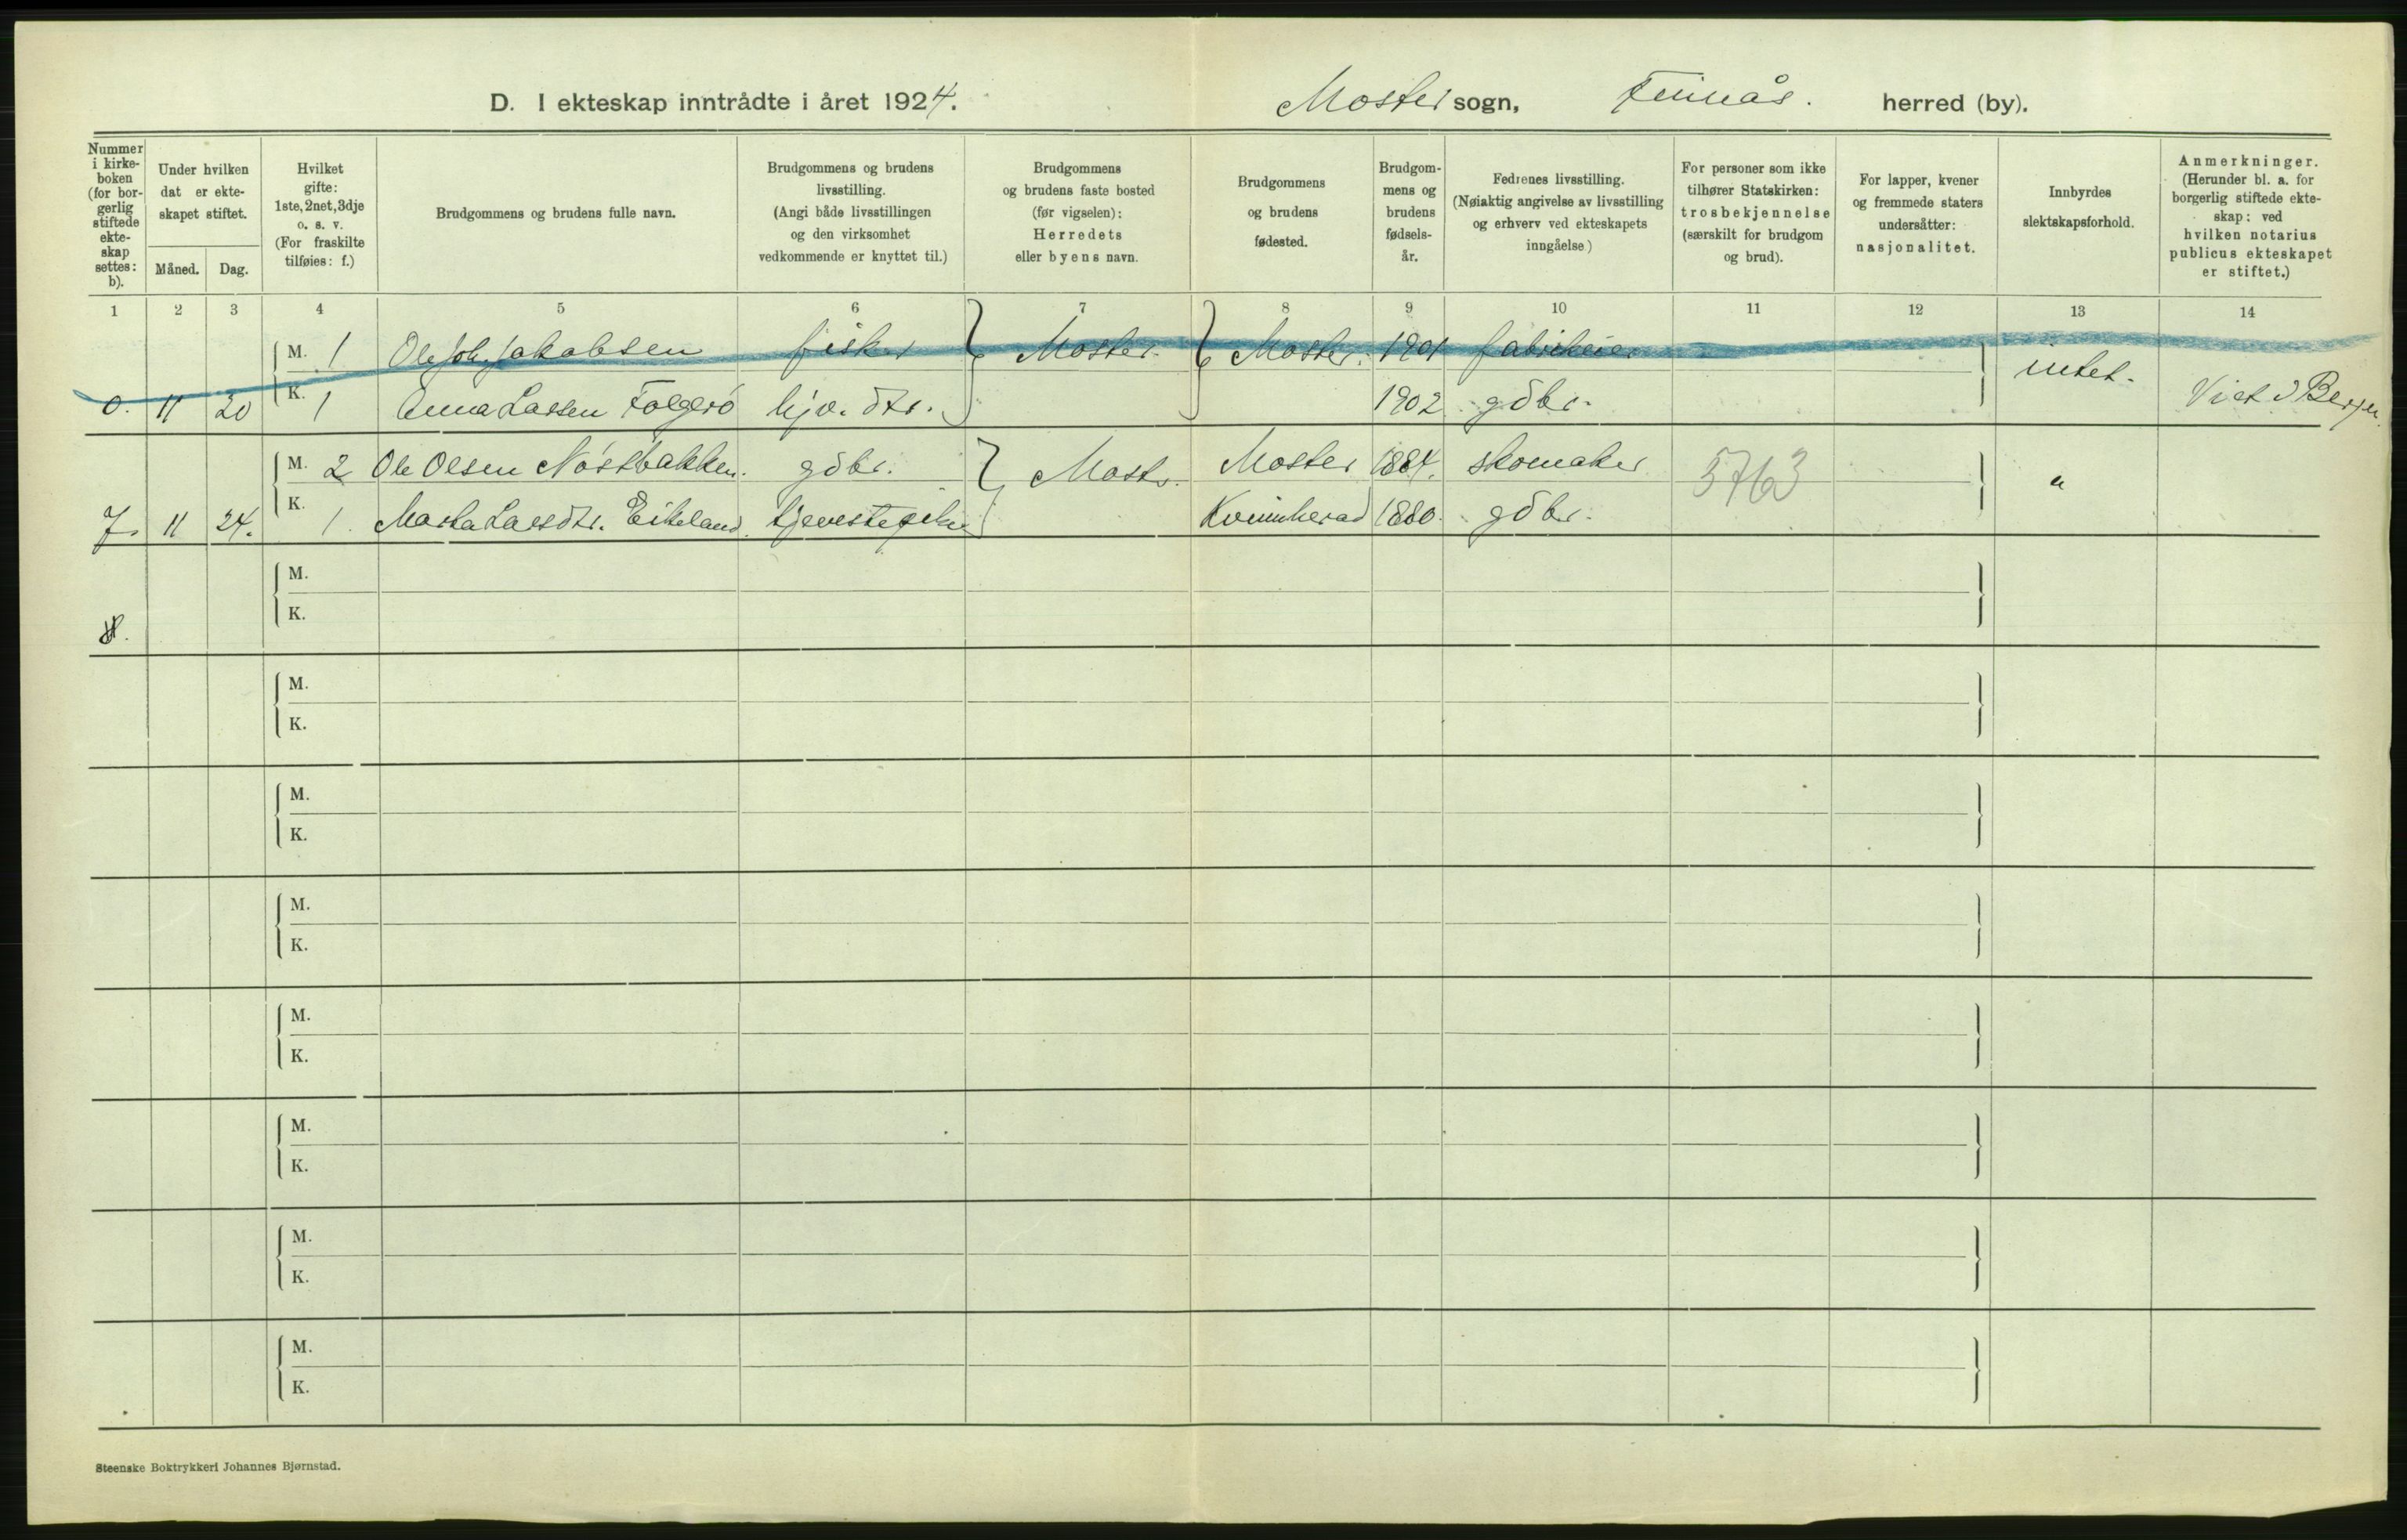 D. I ekteskap inntrådte i året 1924.
Moster sogn, Finnås. herred (by).
Nummer i kirkeboken (for borgerlig stiftede ekteskap settes: b).
Under hvilken dat er ekteskapet stiftet.
Måned. Dag.
Hvilket gifte: 1ste, 2net, 3dje o. s. v. (For fraskilte tilføies: f.)
Brudgommens og brudens fulle navn.
Brudgommens og brudens livsstilling. (Angi både livsstillingen og den virksomhet vedkommende er knyttet til.)
Brudgommens og brudens faste bosted (før vigselen): Herredets eller byens navn.
Brudgommens og brudens fødested.
Brudgommens og brudens fødselsår.
Fedrenes livsstilling. (Nøiaktig angivelse av livsstilling og erhverv ved ekteskapets inngåelse)
For personer som ikke tilhører Statskirken: trosbekjennelse (særskilt for brudgom og brud).
For lapper, kvener og fremmede staters undersåtter: nasjonalitet.
Innbyrdes slektskapsforhold.
Anmerkninger. (Herunder bl. a. for borgerlig stiftede ekteskap: ved hvilken notarius publicus ekteskapet er stiftet.)
1 2 3 4 5 6 7 8 9 10 11 12 13 14
M. 1 Ole Joh. Jakobsen fisker Moster. Moster. 1901 fabrikeier
0. 11 20 K. 1 Anna Larsen Folgerö hjv. dtr. 1902 gdbr. intet. Viet i Bergen
M. 2 Ole Olsen Nöstbakken. gdbr. Mostr. Moster 1884. skomaker 5763 "
7. 11 24. K. 1. Marta Larsdtr. Eikeland. tjenestepike Kvinnherad 1880. gdbr.
M.
K.
8.
M.
K.
M.
K.
M.
K.
M.
K.
M.
K.
M.
K.
M.
K.
Steenske Boktrykkeri Johannes Bjørnstad.